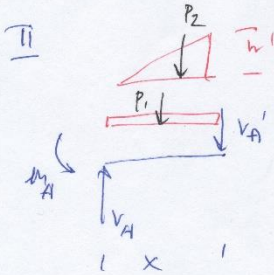 II
P2
P1
VA'
mA
VA
x